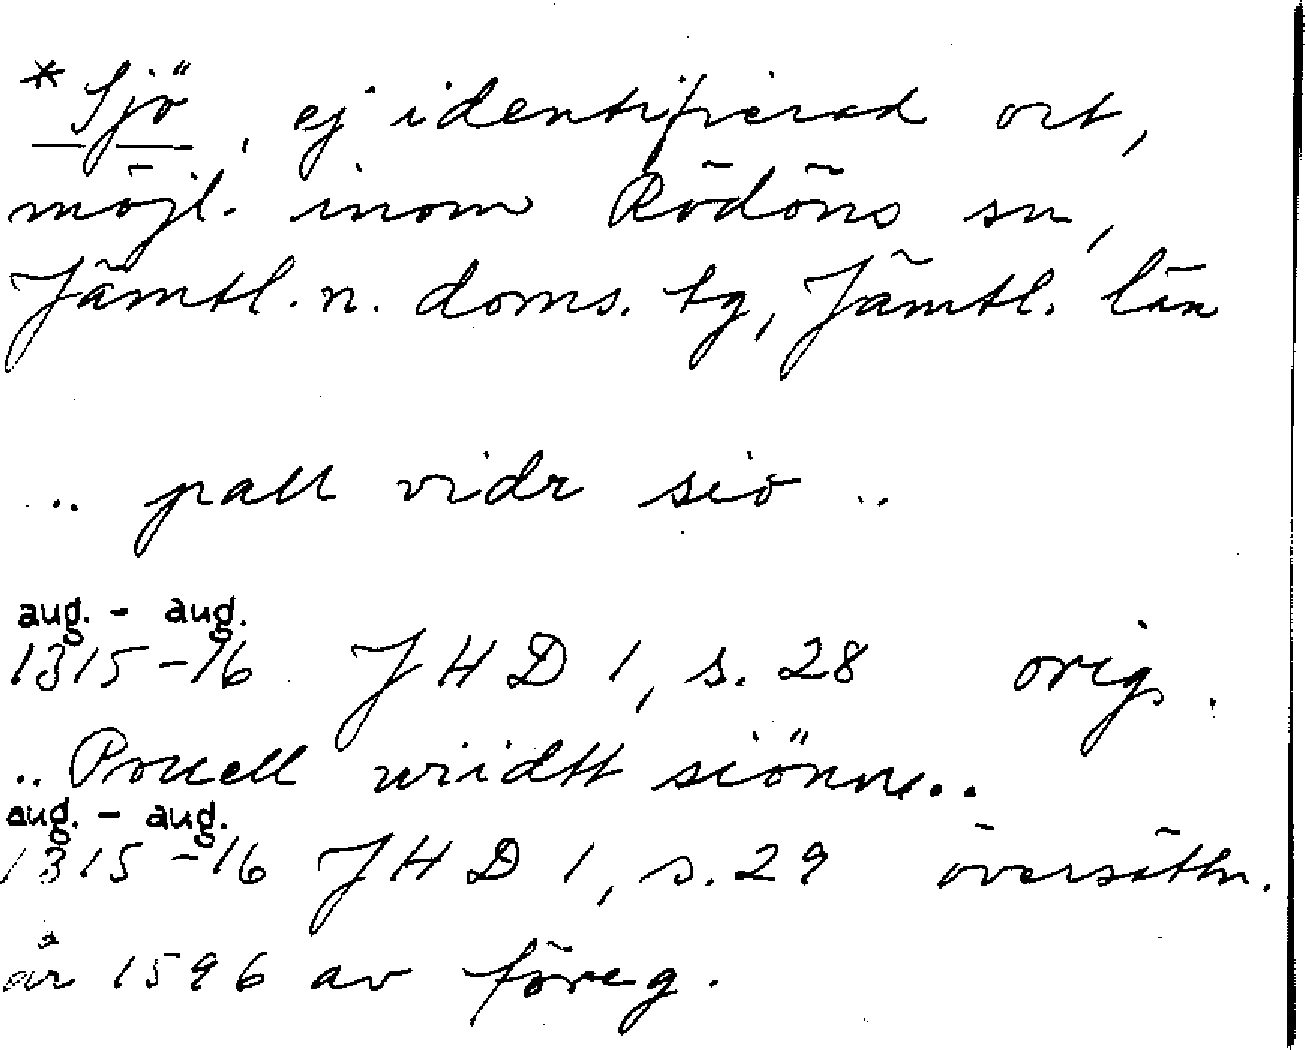 * Sjö, ej identifierad ort,
möjl. inom Rödöns sn,
Jämtl. n. doms. tg, Jämtl. län
.. pall vidr sio ..
aug. - aug.
1315-16 JHD 1, s. 28 orig.
.. Pouell wiidtt siönn..
aug. - aug.
1315-16 JHD 1, s. 29 översättn.
år 1596 av föreg.